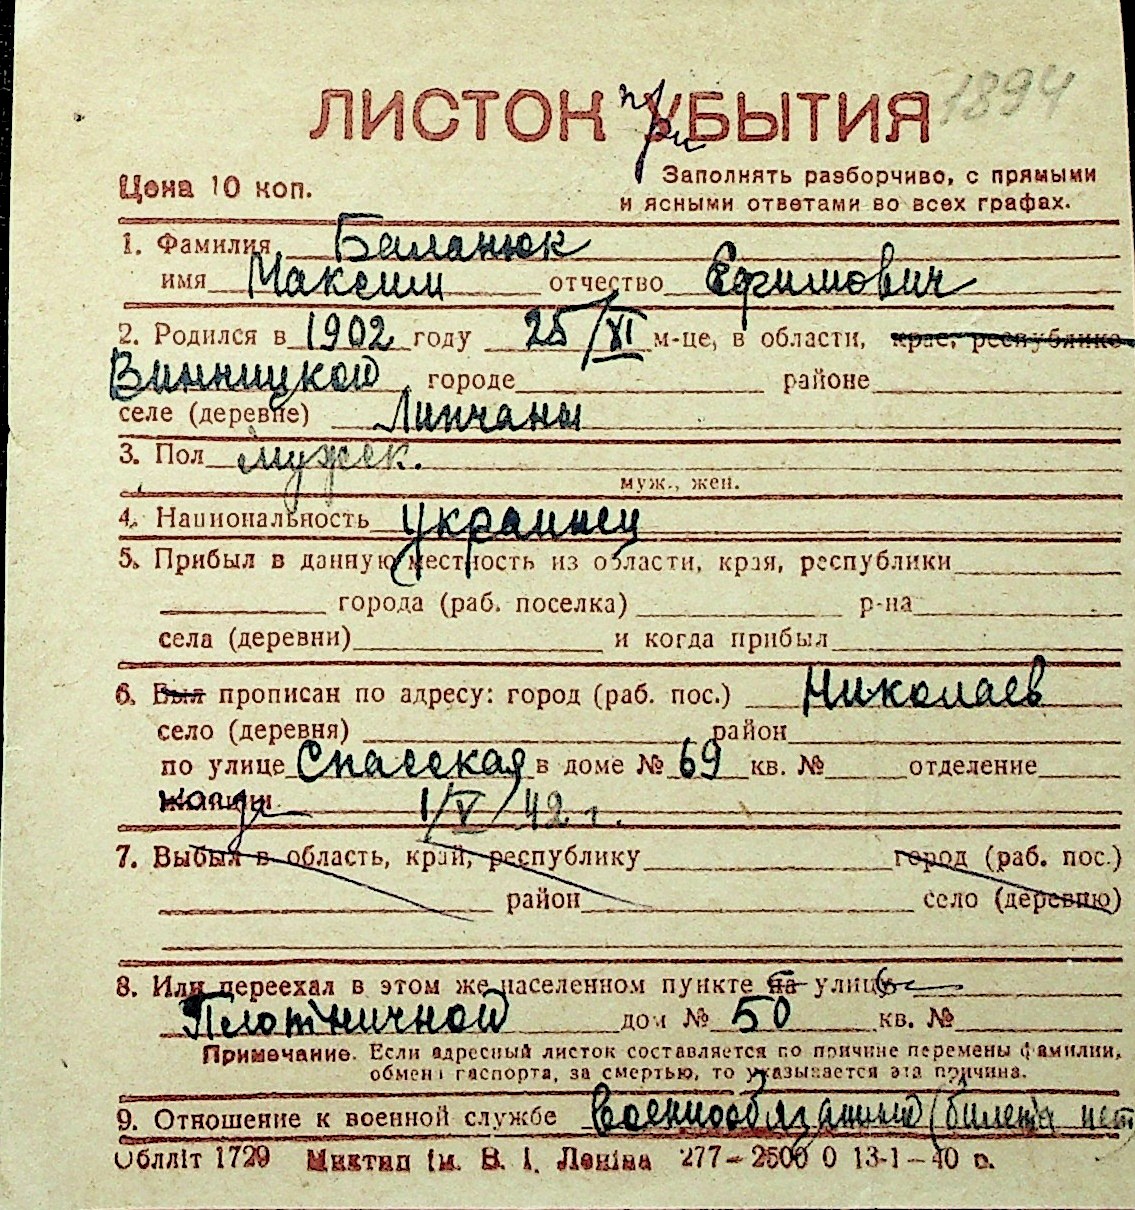 1894
ЛИСТОК при УБЫТИЯ
Цена 10 коп.
Заполнять разборчиво, с прямыми
и ясными ответами во всех графах.
1. Фамилия Баланюк
имя Максим отчество Ефимович
2. Родился в 1902 году 25/XI м-це, в области, крае, республике
Винницкой городе районе
селе (деревне) Липчаны
3. Пол мужск.
муж., жен.
4. Национальность украинец
5. Прибыл в данную местность из области, края, республики
города (раб. поселка) р-на
села (деревни) и когда прибыл
6. Был прописан по адресу: город (раб. пос.) Николаев
село (деревня) район
по улице Спасская в доме № 69 кв. № отделение
1/V 42 г.
7. Выбыл в область, край, республику город (раб. пос.)
район село (деревню)
8. Или переехал в этом же населенном пункте на улицу
Плотничной дом № 50 кв. №
Примечание. Если адресный листок составляется по причине перемены фамилии,
обмена паспорта, за смертью, то указывается эта причина.
9. Отношение к военной службе военнообязанный (билета нет
Облліт 1729 Миктип ім. В. І. Леніна 277–2500 0 13-1–40 р.